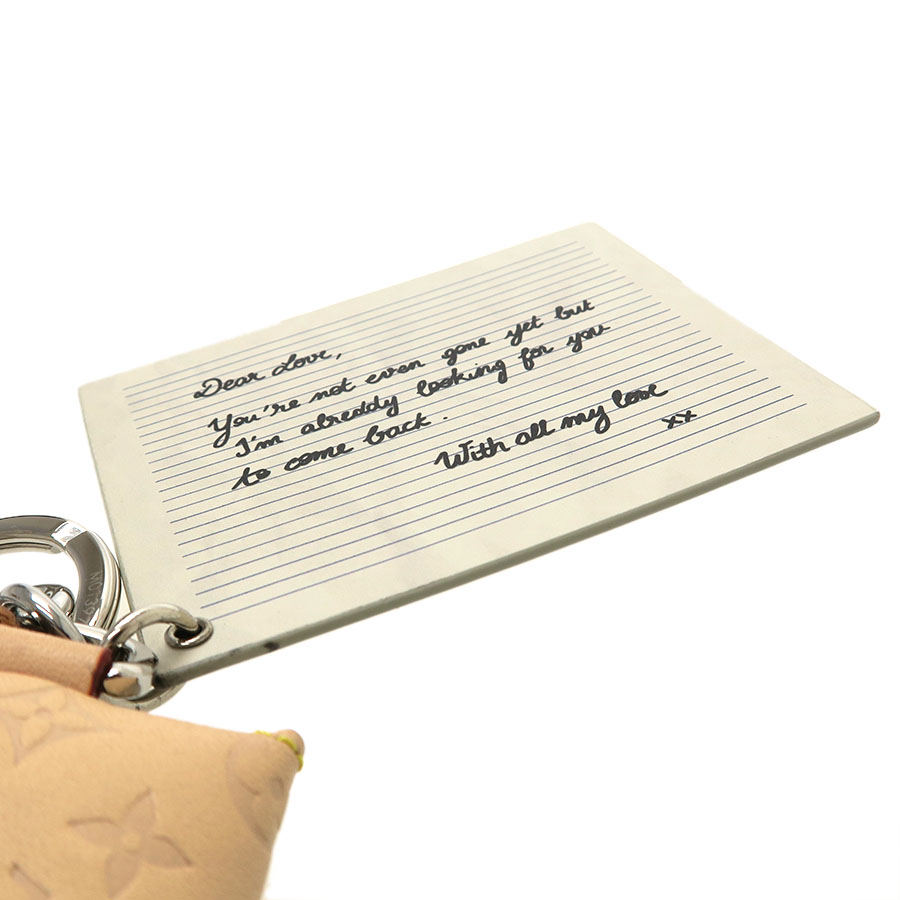 Dear Love,
You're not even gone yet but
I'm already looking for you
to come back.
With all my love
xx